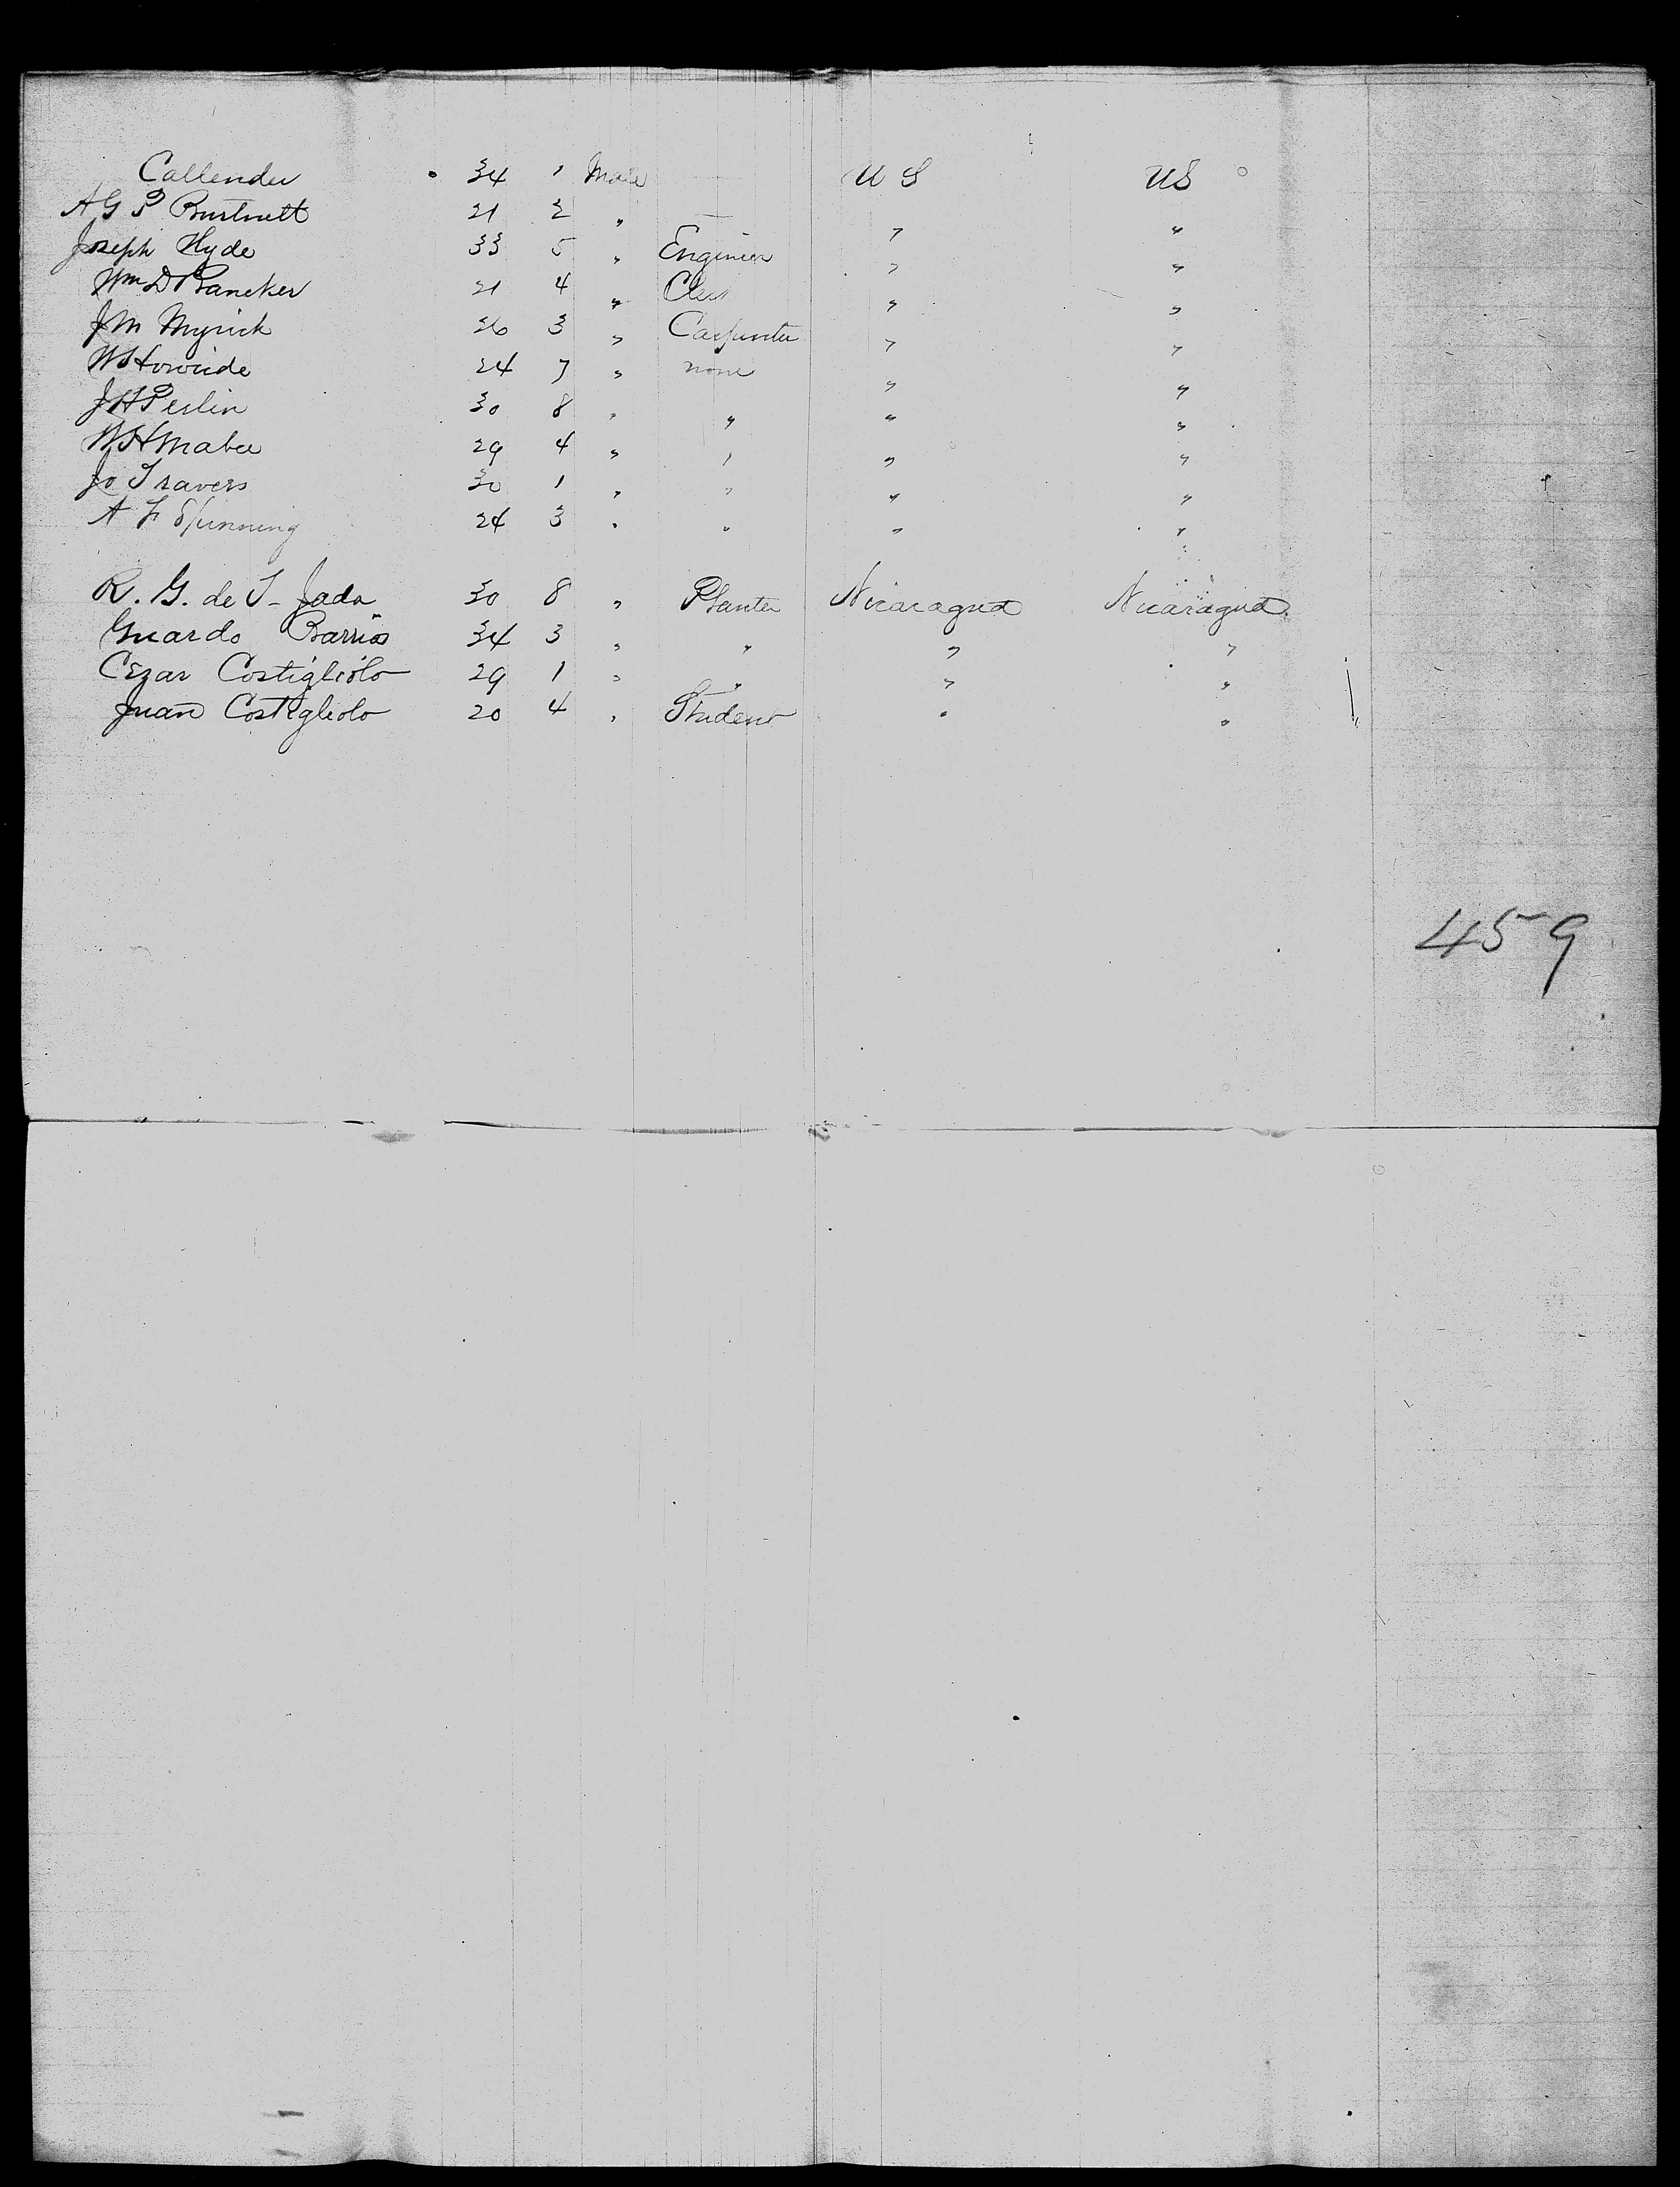 Callender 34 1 Male U S US
A G P Burtnett 21 2 " — " "
Joseph Hyde 33 5 " Engineer " "
Wm D Bancker 21 4 " Clerk " "
J M Myrick 26 3 " Carpenter " "
24 7 " none " "
J H Perlin 30 8 " " " "
W H Mabee 29 4 " " " "
Jo Travers 30 1 " " " "
A F Spinning 24 3 " " " "
R. G. de T- Jada 30 8 " Planter Nicaragua Nicaragua
Barrios 34 3 " " " "
Cezar Costigliolo 29 1 " " " "
Juan Costigliolo 20 4 " Student " "
459